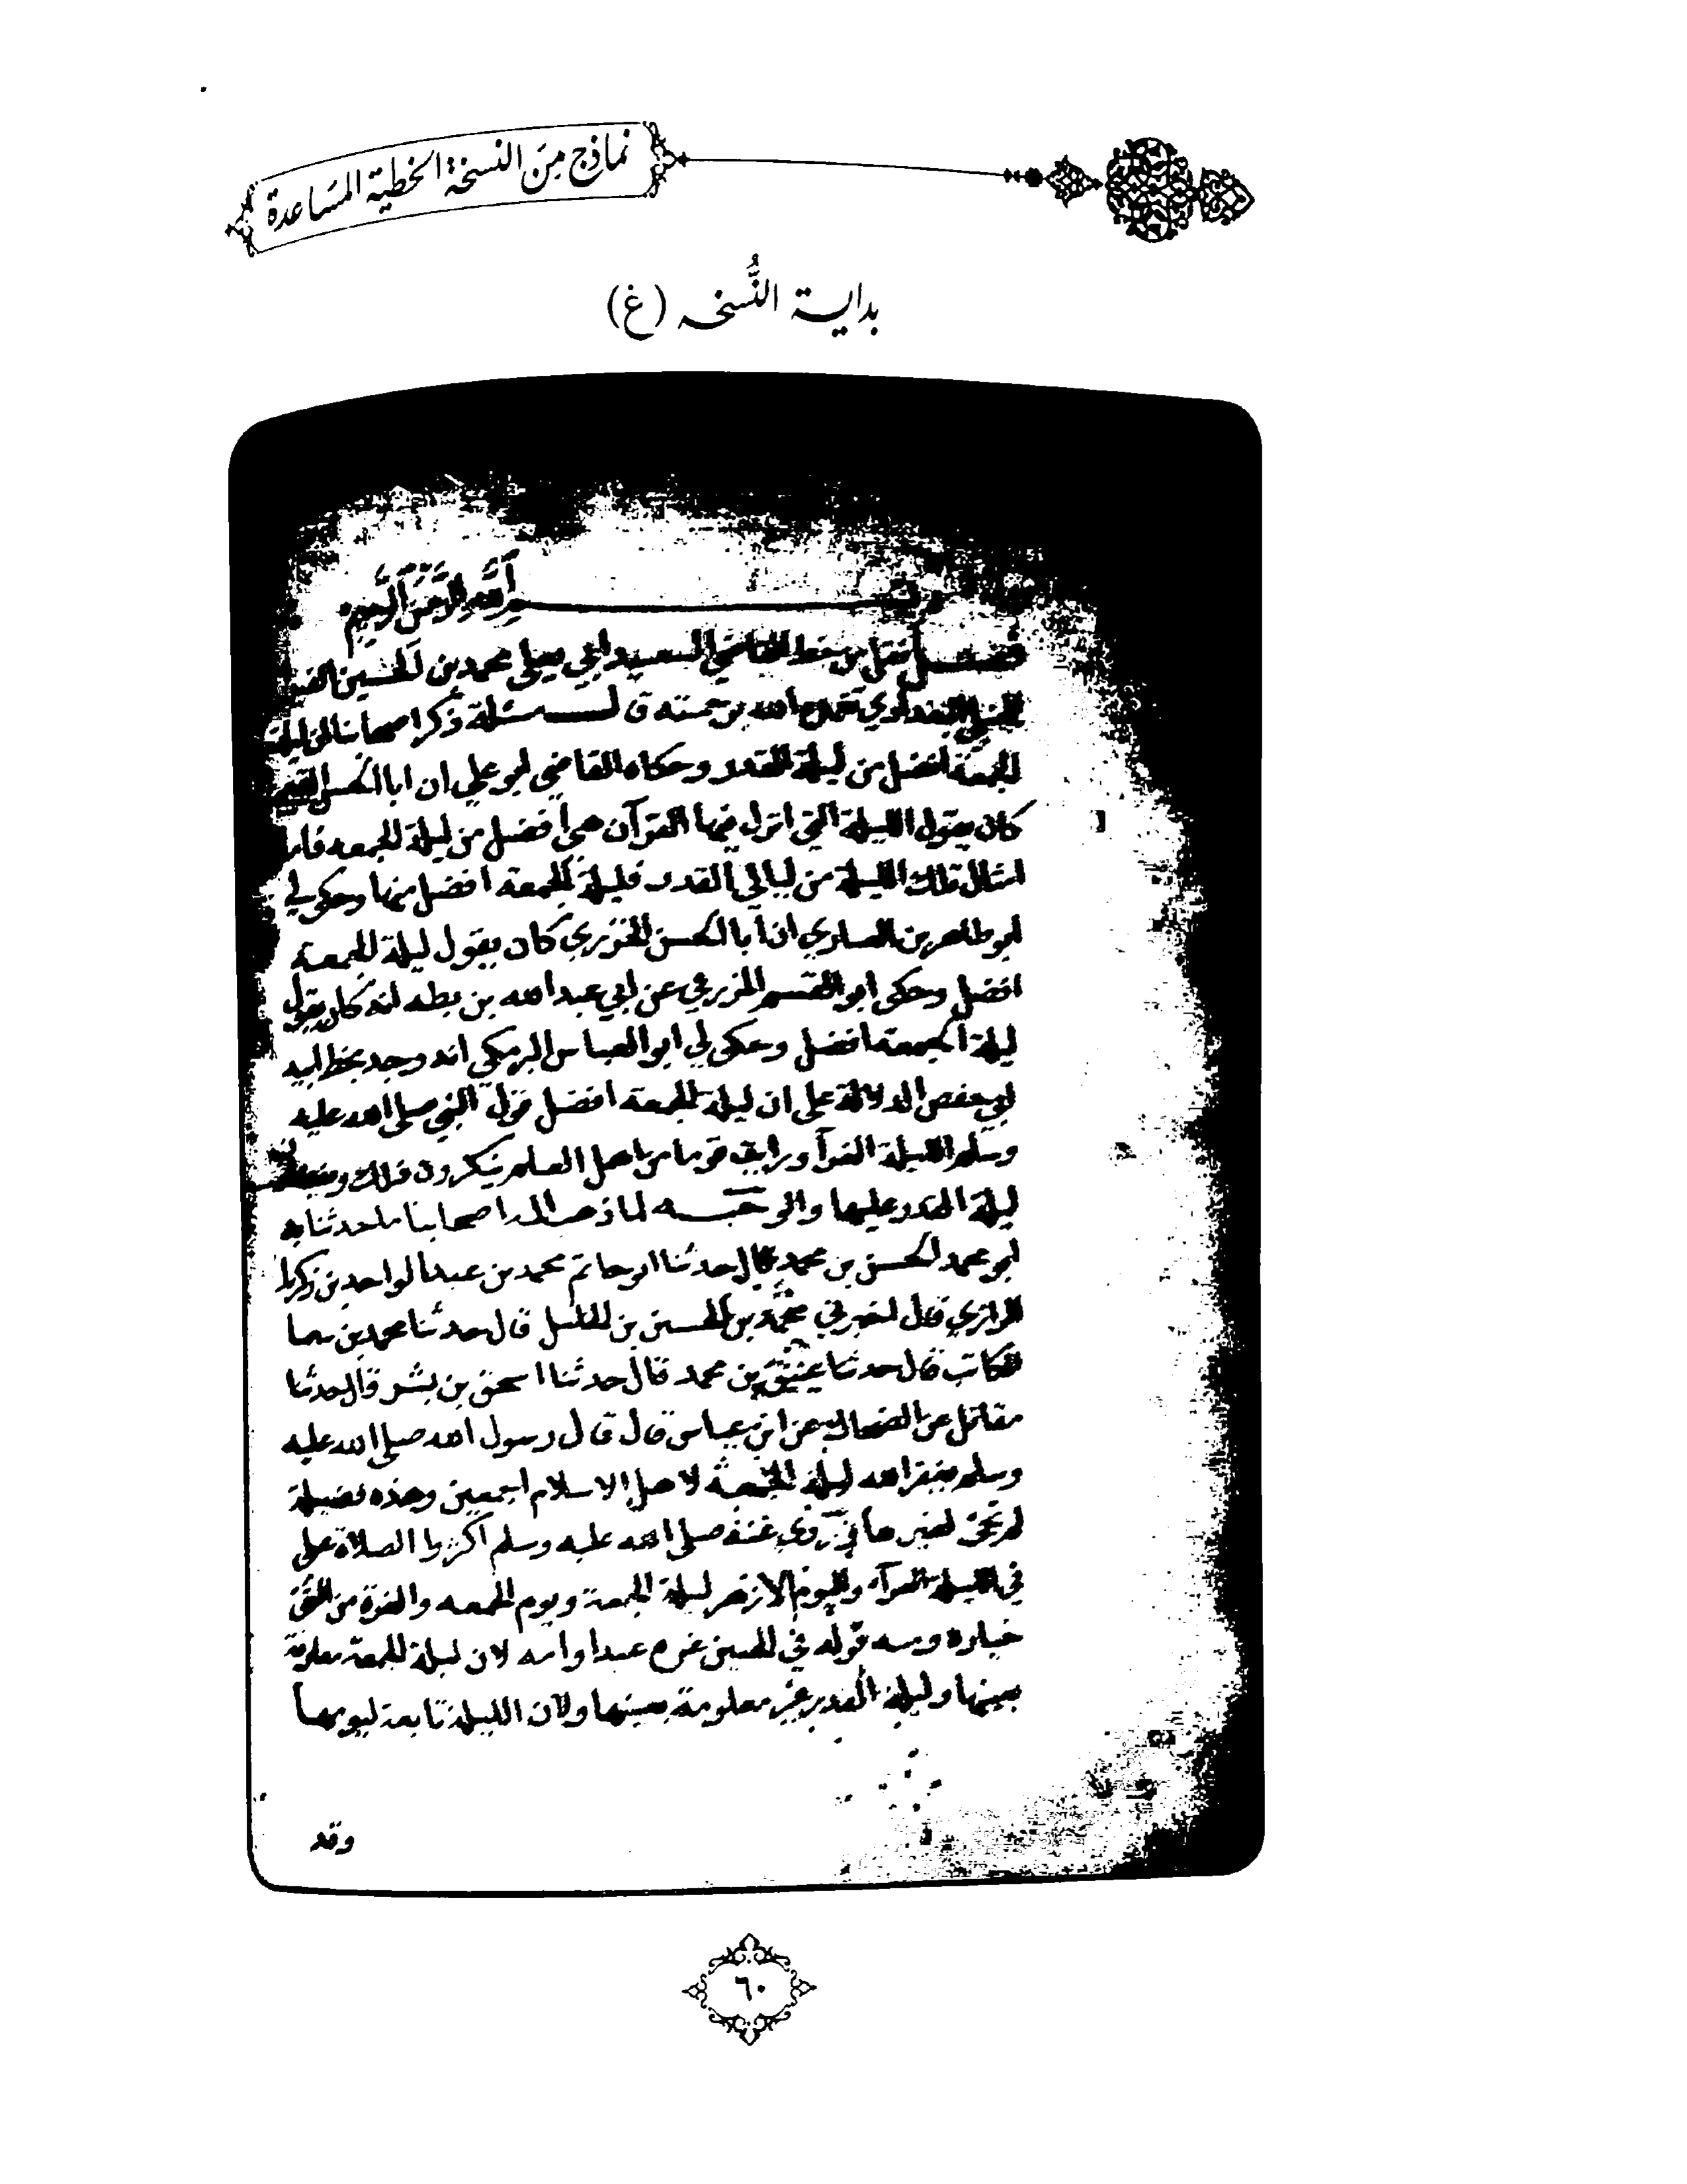 نماذج من النسخة الخطية المساعدة
بداية النُّسخہ (غ)
الله الرحمن الرحيم
فصل نقل من خط القاضي السعيد ابي يعلى محمد بن الحسين
البغدادي تغمده الله برحمته قال مسئلة ذكر اصحابنا ان ليلة
الجمعة افضل من ليلة القدر وحكاه القاضي ابو علي ان ابا الحسن
كان يقول الليلة التي انزل فيها القرآن هي افضل من ليلة الجمعه فاما
امثال تلك الليلة من ليالي القدر فليلة الجمعة افضل منها وحكى لي
ابو طاهر بن ان ابا الحسن الخزري كان يقول ليلة الجمعة
افضل وحكى ابو القسم المزرعي عن ابي عبد الله بن بطه انه كان يقول
ليلة الجمعة افضل وحكى لي ابو العباس البرمكي انه وجد بخط ابيه
ابي حفص الدلالة على ان ليلة الجمعة افضل قول النبي صلى الله عليه
وسلم الليلة الغرآ ورايت قوما من اهل العلم ينكرون ذلك
ليلة القدر عليها والوجه لما ذهب اليه اصحابنا ما حدثنا به
ابو محمد الحسن بن محمد قال حدثنا ابو حاتم محمد بن عبد الواحد بن زكريا
الرازي قال اخبرني محمد بن الحسين بن الخليل قال حدثنا محمد بن
الكاتب قال حدثنا عتيق بن محمد قال حدثنا اسحق بن بشر قال حدثنا
مقاتل عن الضحاك عن ابن عباس قال قال رسول الله صلى الله عليه
وسلم يغفر الله ليلة الجمعة لاهل الاسلام اجمعين وهذه فضيلة
لم تجئ لغيرها روي عنه صلى الله عليه وسلم اكثروا الصلاة علي
في الليلة الغرآء واليوم الازهر ليلة الجمعة ويوم الجمعه والغرة من الشئ
خياره ومنه قوله في الجنين غرة عبد او امه لان ليلة الجمعة معلومة
بعينها وليلة القدر غير معلومة بعينها ولان الليلة تابعة ليومها
وقد
٦٠